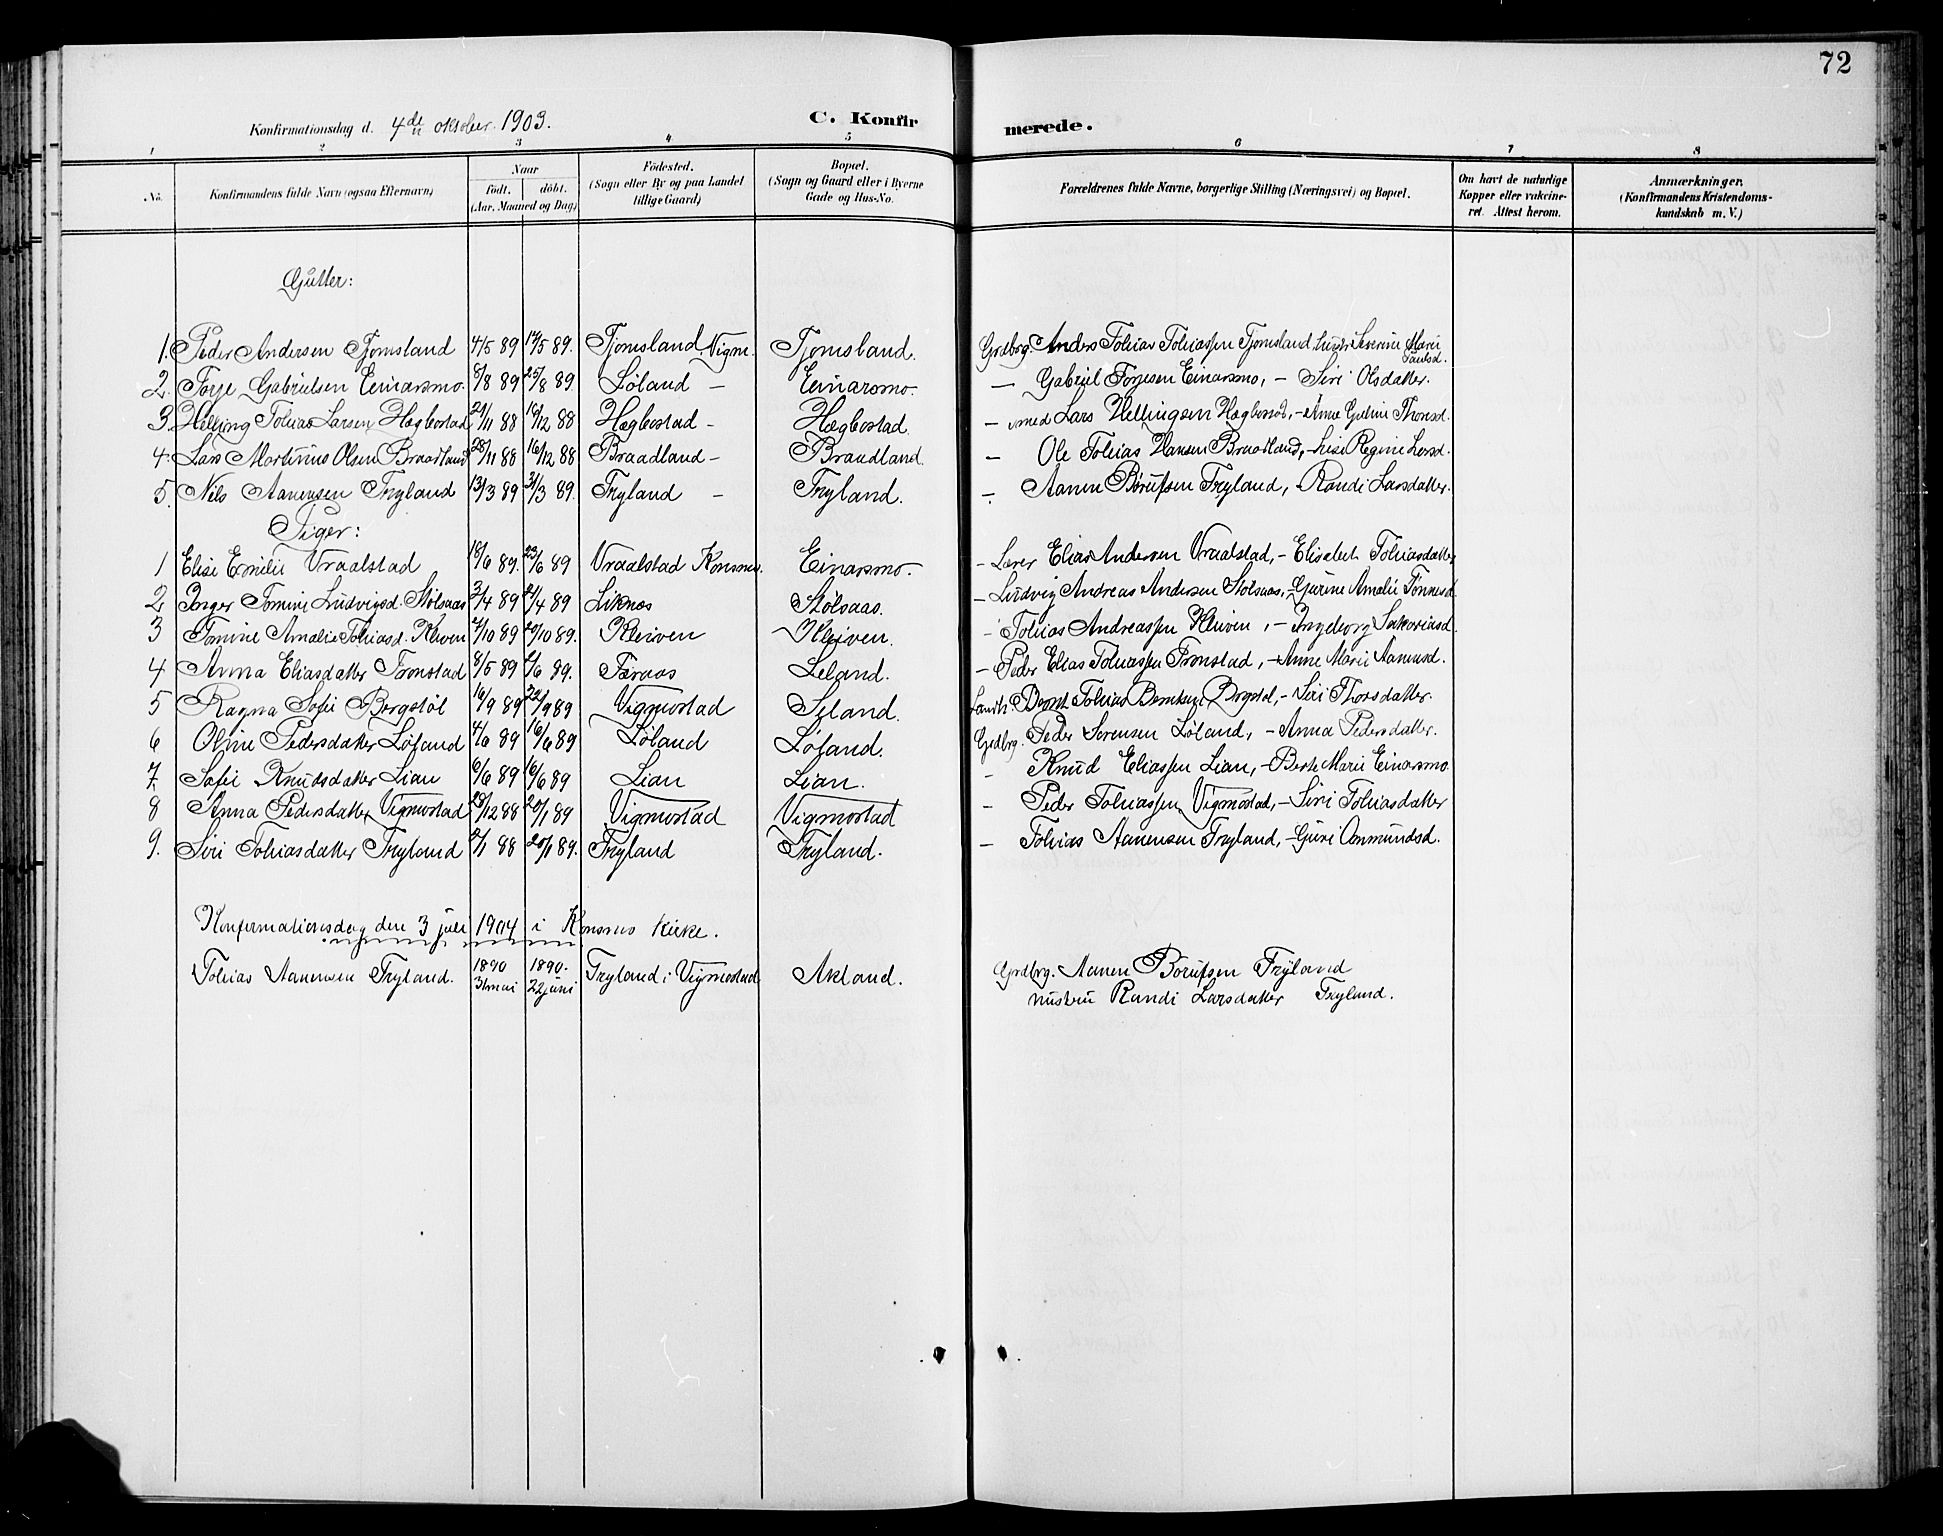 72
Konfirmationsdag d. 4de oktober 1903. C. Konfirmerede.
1 2 3 4 5 6 7 8
No. Konfirmandens fulde Navn (ogsaa Efternavn) Naar födt. döbt. (Aar, Maaned og Dag) Födested. (Sogn eller By og paa Landet tillige Gaard) Bopæl. (Sogn og Gaard eller i Byerne Gade og Hus-No. Forældrenes fulde Navne, borgerlige Stilling (Næringsvei) og Bopæl. Om havt de naturlige Kopper eller vakcineret. Attest herom. Anmærkninger. (Konfirmandens Kristendomskundskab m. V.)
Gutter:
1. Peder Andersen Tjomsland 4/5 89 17/5 89. Tjomsland Vigm. Tjomsland. Grdbrg. Anders Tobias Tobiassen Tjomsland Severine Marie Paulsd.
2. Torje Gabrielsen Einarsmo. 8/8 89 25/8 89. Löland - Einarsmo. - Gabriel Torjesen Einarsmo, - Siri Olsdatter.
3. Helling Tobias Larsen Hægbostad 29/11 88 16/12 88 Hægbostad - Hægbostad. - smed Lars Hellingsen Hægbostad, - Anne Gurine Thorsd.
4. Lars Martinius Olsen Braadland 28/11 88 16/12 88 Braadland - Braadland. - Ole Tobias Hansen Braadland, - Lise Regine Larsd.
5. Nils Aanensen Tryland 13/3 89 31/3 89. Tryland - Tryland. - Aanen Börufsen Tryland, - Randi Larsdatter.
Piger:
1 Elise Emilie Vraalstad 18/6 89. 23/6 89 Vraalstad Konsmo. Einarsmo. - Lærer Elias Andersen Vraalstad, - Elisabeth Tobiasdatter
2 Inger Tomine Ludvigsd. Stölsaas 3/4 89 21/4 89 Liknes Stölsaas. - Ludvig Andreas Andersen Stölsaas, - Gurine Amalie Tönnesd.
3 Tomine Amalie Tobiasd. Kleiven 7/10 89 20/10 89. Kleiven Kleiven. - Tobias Andreassen Kleiven, - Ingeborg Sakariasd.
4 Anna Eliasdatter Tronstad 8/5 89 2/6 89. Foraas Leland. - Peder Elias Tobiassen Tronstad, - Anne Marie Aanensd.
5 Ragna Sofie Bergstöl 16/9 89 22/9 89 Vigmostad Seland. Landh. Bernt Tobias Berntsen Bergstöl, - Siri Thorsdatter.
6 Oline Pedersdatter Löland 4/6 89 16/6 89 Löland Löland. Grdbrg. Peder Sörensen Löland, - Anna Pedersdatter.
7 Sofie Knudsdatter Lian 6/6 89 16/6 89 Lian Lian. - Knud Eliassen Lian, - Berte Marie Einarsmo
8 Anna Pedersdatter Vigmostad 28/12 88 20/1 89 Vigmostad Vigmostad - Peder Tobiassen Vigmostad, - Siri Tobiasdatter
9. Siri Tobiasdatter Tryland 2/1 88 20/1 89. Tryland Tryland. - Tobias Aanensen Tryland, - Guri Omundsd.
Konfirmationsdag den 3 juli 1904 i Konsmo Kirke.
Tobias Aanensen Tryland. 1890 31 mai 1890. 22 juni Tryland i Vigmostad Akland. Grdbrg. Aanen Börufsen Tryland
hustru Randi Larsdatter Tryland.